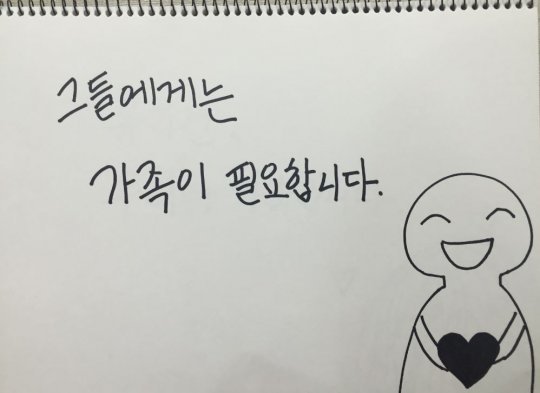 그들에게는
가족이 필요합니다.